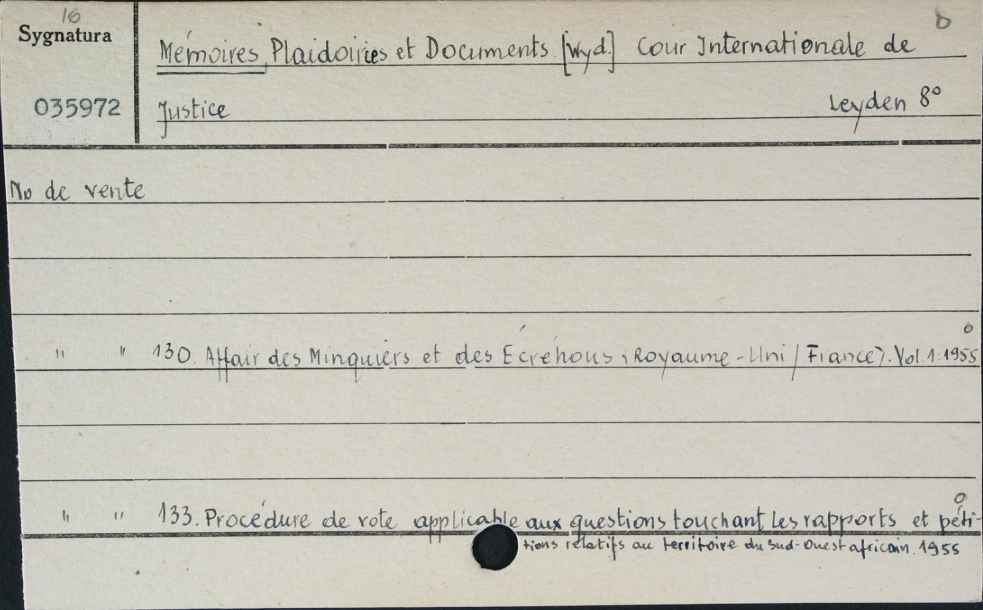 16 b
Sygnatura
Mémoires, Plaidoiries et Documents [Wyd.] Cour Internationale de
035972 Justice Leyden 8°
No de vente
" " 130. Affair des Minquiers et des Ecréhous (Royaume-Uni / France). Vol 1. 1955
" " 133. Procédure de vote applicable aux questions touchant les rapports et péti-
tions relatifs au territoire du Sud-Ouest africain. 1955